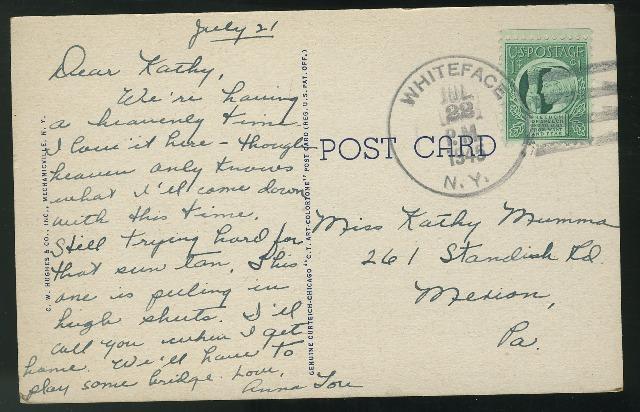 July 21
Dear Kathy,
We're having
a heavenly time
I love it here - though
heaven only knows
what I'll come down
with this time.
Still trying hard for
that sun tan. This
one is peeling in
high sheets. I'll
call you when I get
home. We'll have to
play some bridge. Love,
Anna Lou
C. W. HUGHES & CO., INC., MECHANICVILLE, N. Y.
GENUINE CURTEICH-CHICAGO "C.T. ART-COLORTONE" POST CARD (REG. U. S. PAT. OFF.)
POST CARD
WHITEFACE
JUL
22
P.M.
N. Y.
U.S. POSTAGE
Miss Kathy Mumma
261 Standish Rd.
Merion,
Pa.